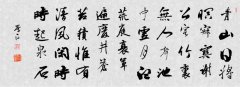 青山日將
暝寂寞謝
公宅竹裏
無人聲池
中虛月白
荒庭衰草
遍廢井蒼
苔積惟有
清風閑時
時起泉石